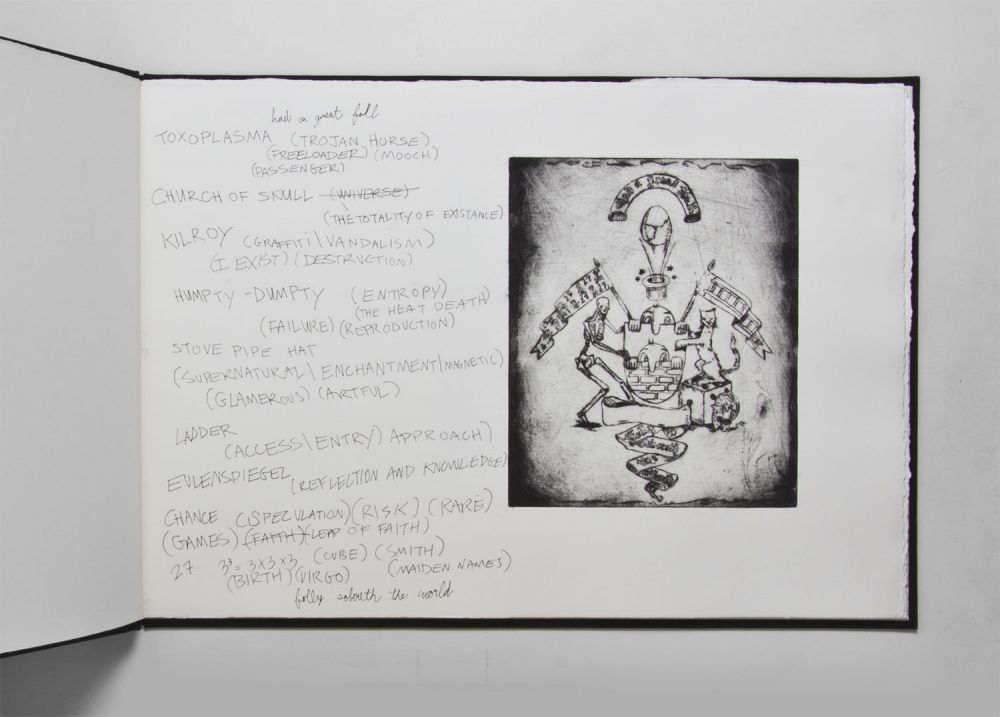 had a great fall
TOXOPLASMA (TROJAN HORSE)
(FREELOADER) (MOOCH)
(PASSENGER)
CHURCH OF SKULL (UNIVERSE)
(THE TOTALITY OF EXISTANCE)
KILROY (GRAFFITI\VANDALISM)
(I EXIST) (DESTRUCTION)
HUMPTY-DUMPTY (ENTROPY)
(THE HEAT DEATH)
(FAILURE) (REPRODUCTION)
STOVE PIPE HAT
(SUPERNATURAL\ENCHANTMENT\MAGNETIC)
(GLAMEROUS) (ARTFUL)
LADDER
(ACCESS\ENTRY) APPROACH)
EULENSPIEGEL (REFLECTION AND KNOWLEDGE)
CHANCE (SPECULATION) (RISK) (RARE)
(GAMES) (FAITH) (LEAP OF FAITH)
27. 3³ = 3x3x3 (CUBE) (SMITH)
(BIRTH) (VIRGO) (MAIDEN NAMES)
folly the world
had a great fall